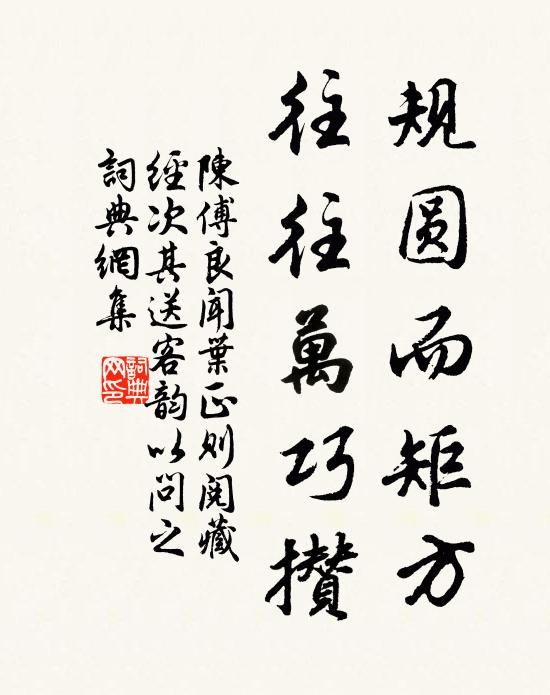 规圆而矩方
往往萬巧攢
陳傅良闻葉正则閱藏
經次其送客韵以問之
詞典網集
詞典网印